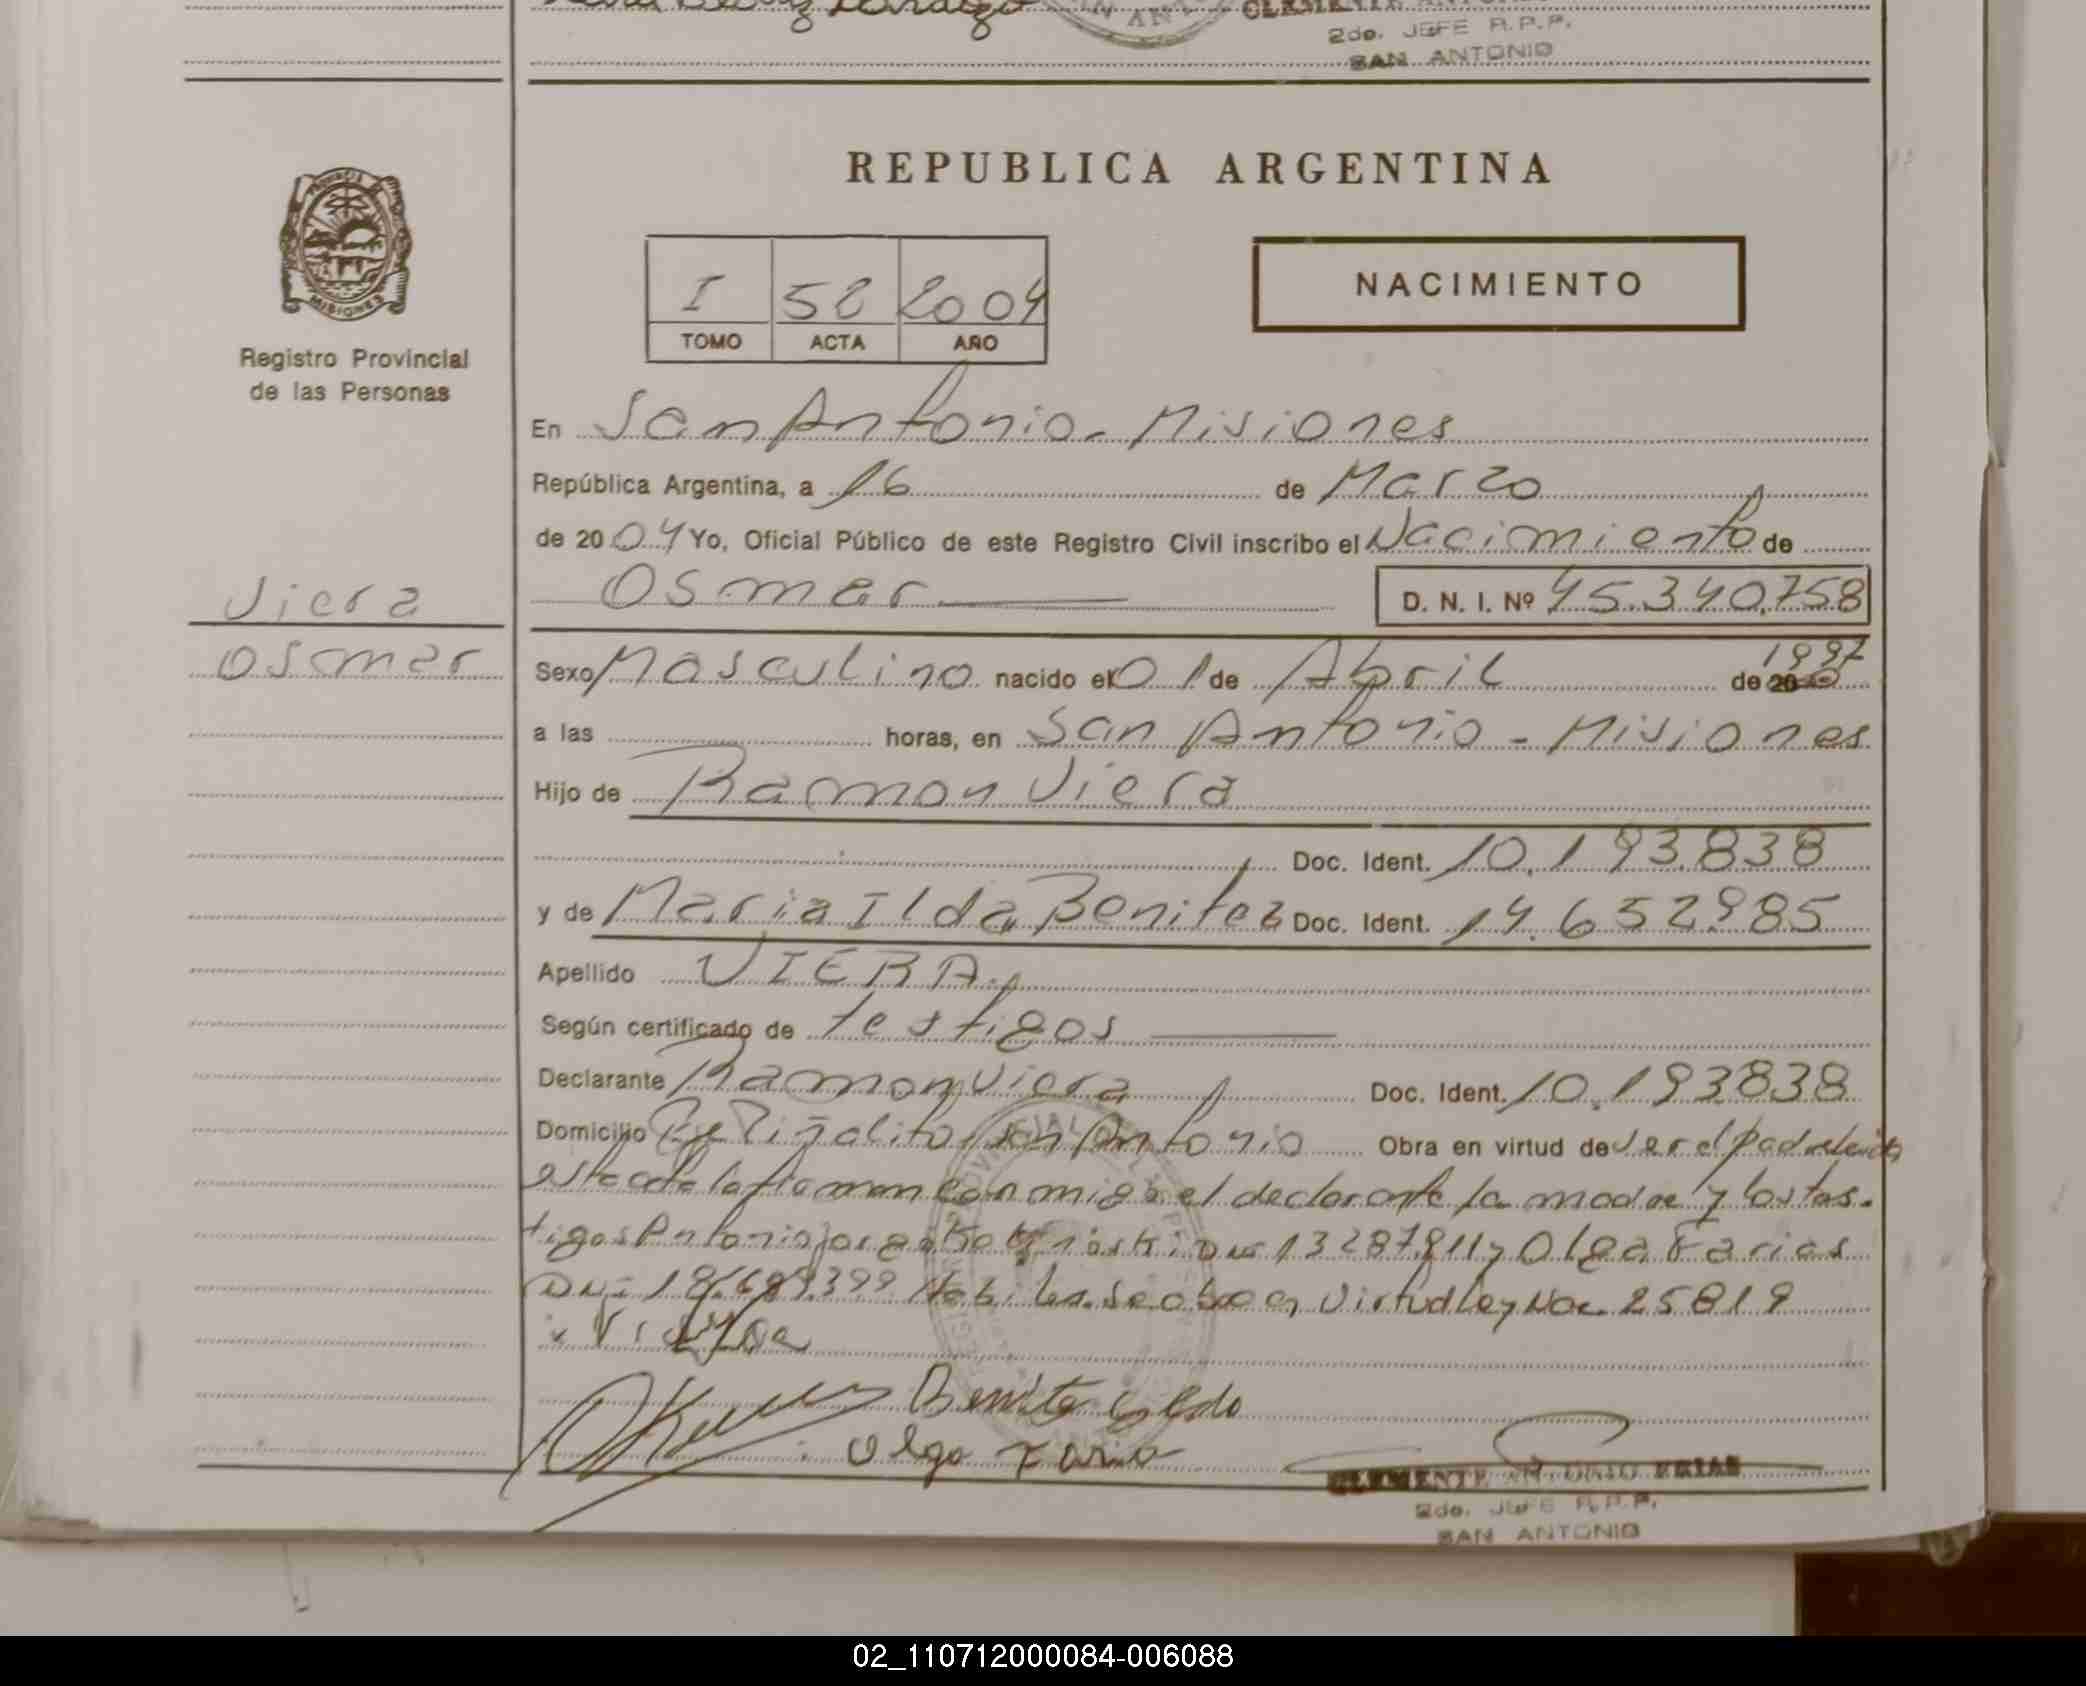 2do. JEFE R.P.P.
SAN ANTONIO
MISIONES
Registro Provincial
de las Personas
REPUBLICA ARGENTINA
I 52 2004
TOMO ACTA AÑO
NACIMIENTO
En San Antonio - Misiones
República Argentina, a 16 de Marzo
de 2004 Yo, Oficial Público de este Registro Civil inscribo el Nacimiento de
Osmar D. N. I. Nº 45.340.758
Viera
Osmar
Sexo Masculino nacido el 01 de Abril de 1997
a las horas, en San Antonio - Misiones
Hijo de Ramon Viera
Doc. Ident. 10.193.838
y de Maria Ilda Benitez Doc. Ident. 14.652.985
Apellido VIERA
Según certificado de testigos
Declarante Ramon Viera Doc. Ident. 10.193.838
Domicilio Piñalito San Antonio Obra en virtud de ser el padre leida
esta acta la firman conmigo el declarante la madre y los tes-
tigos Antonio Jorge y Olga Farias
DNI 18.689.399 en virtud Ley Nro. 25819
Benitez Ilda
Olga Faria
CLEMENTE ANTONIO FRIAS
2do. JEFE R.P.P.
SAN ANTONIO
02_110712000084-006088